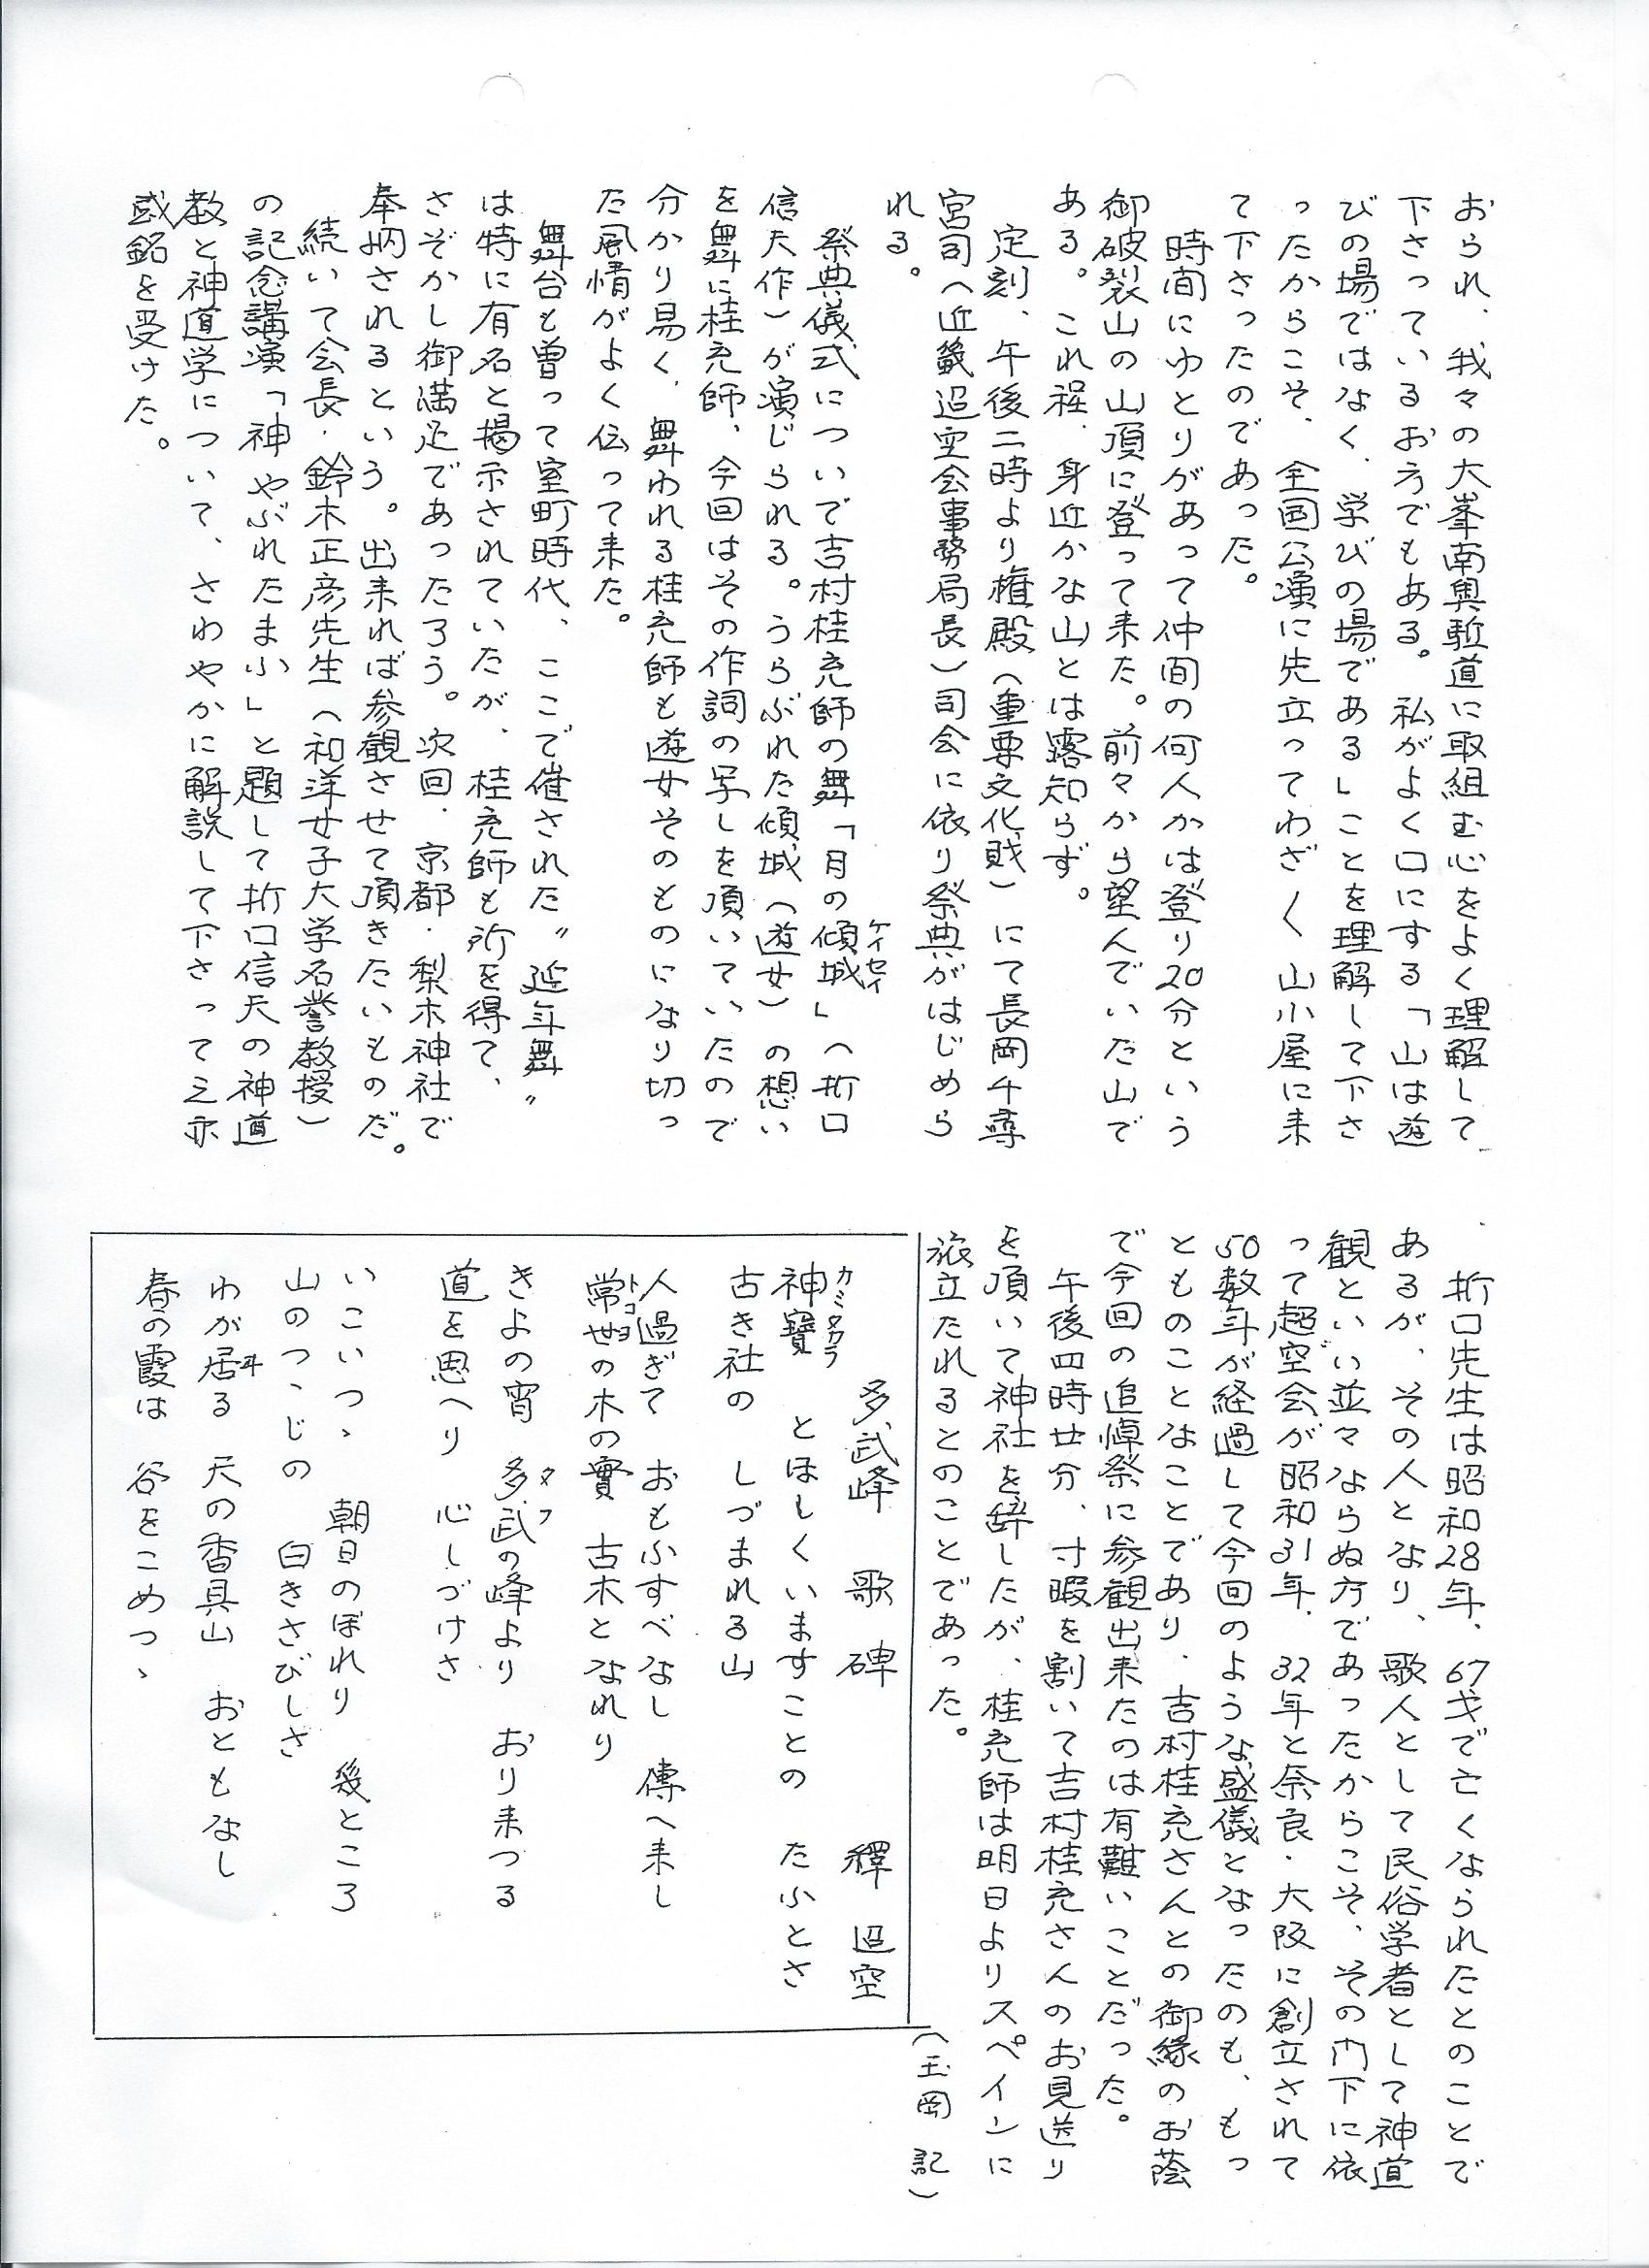 おられ、我々の大峯南奥駈道に取組む心をよく理解して
下さっているお方でもある。私がよく口にする「山は遊
びの場ではなく、学びの場である」ことを理解して下さ
ったからこそ、全国公演に先立ってわざ〱山小屋に来
て下さったのであった。
時間にゆとりがあって仲間の何人かは登り20分という
御破裂山の山頂に登って来た。前々から望んでいた山で
ある。これ程、身近かな山とは露知らず。
定刻、午後二時より権殿（重要文化財）にて長岡千尋
宮司（近畿迢空会事務局長）司会に依り祭典がはじめら
れる。
祭典儀式について吉村桂充師の舞「月の傾城」（折口
ケイセイ
信夫作）が演じられる。うらぶれた傾城（遊女）の想い
を舞に桂充師、今回はその作詞の写しを頂いていたので
分かり易く、舞われる桂充師も遊女そのものになり切っ
た風情がよく伝って来た。
舞台も曽って室町時代、ここで催された〝延年舞〟
は特に有名と掲示されていたが、桂充師も所を得て、
さぞかし御満足であったろう。次回、京都・梨木神社で
奉納されるという。出来れば参観させて頂きたいものだ。
続いて会長・鈴木正彦先生（和洋女子大学名誉教授）
の記念講演「神やぶれたまふ」と題して折口信夫の神道
教と神道学について、さわやかに解説して下さって之亦
感銘を受けた。
折口先生は昭和28年、67才で亡くなられたとのことで
あるが、その人となり、歌人として民俗学者として神道
観といい並々ならぬ方であったからこそ、その門下に依
って超空会が昭和31年、32年と奈良・大阪に創立されて
50数年が経過して今回のような盛儀となったのも、もっ
とものことなことであり、吉村桂充さんとの御縁のお蔭
で今回の追悼祭に参観出来たのは有難いことだった。
午後四時廿分、寸暇を割いて吉村桂充さんのお見送り
を頂いて神社を辞したが、桂充師は明日よりスペインに
旅立たれるとのことであった。
（玉岡 記）
多武峰 歌碑 釋迢空
カミタカラ
神寶 とほしくいますことの たふとさ
古き社の しづまれる山
人過ぎて おもふすべなし 傳へ来し
トコヨ
常世の木の實 古木となれり
きよの宵 多武の峰より おり来つる
タフ
道を思へり 心しづけさ
いこいつゝ 朝日のぼれり 幾ところ
山のつゝじの 白きさびしさ
わが居る 天の香具山 おともなし
ヰ
春の霞は 谷をこめつゝ